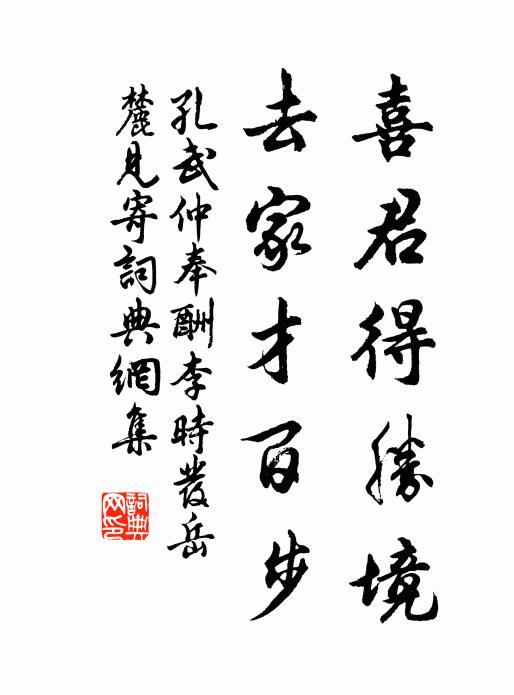 喜君得勝境
去家才百步
孔武仲奉酬李時發岳
麓見寄詞典網集
詞典
网印